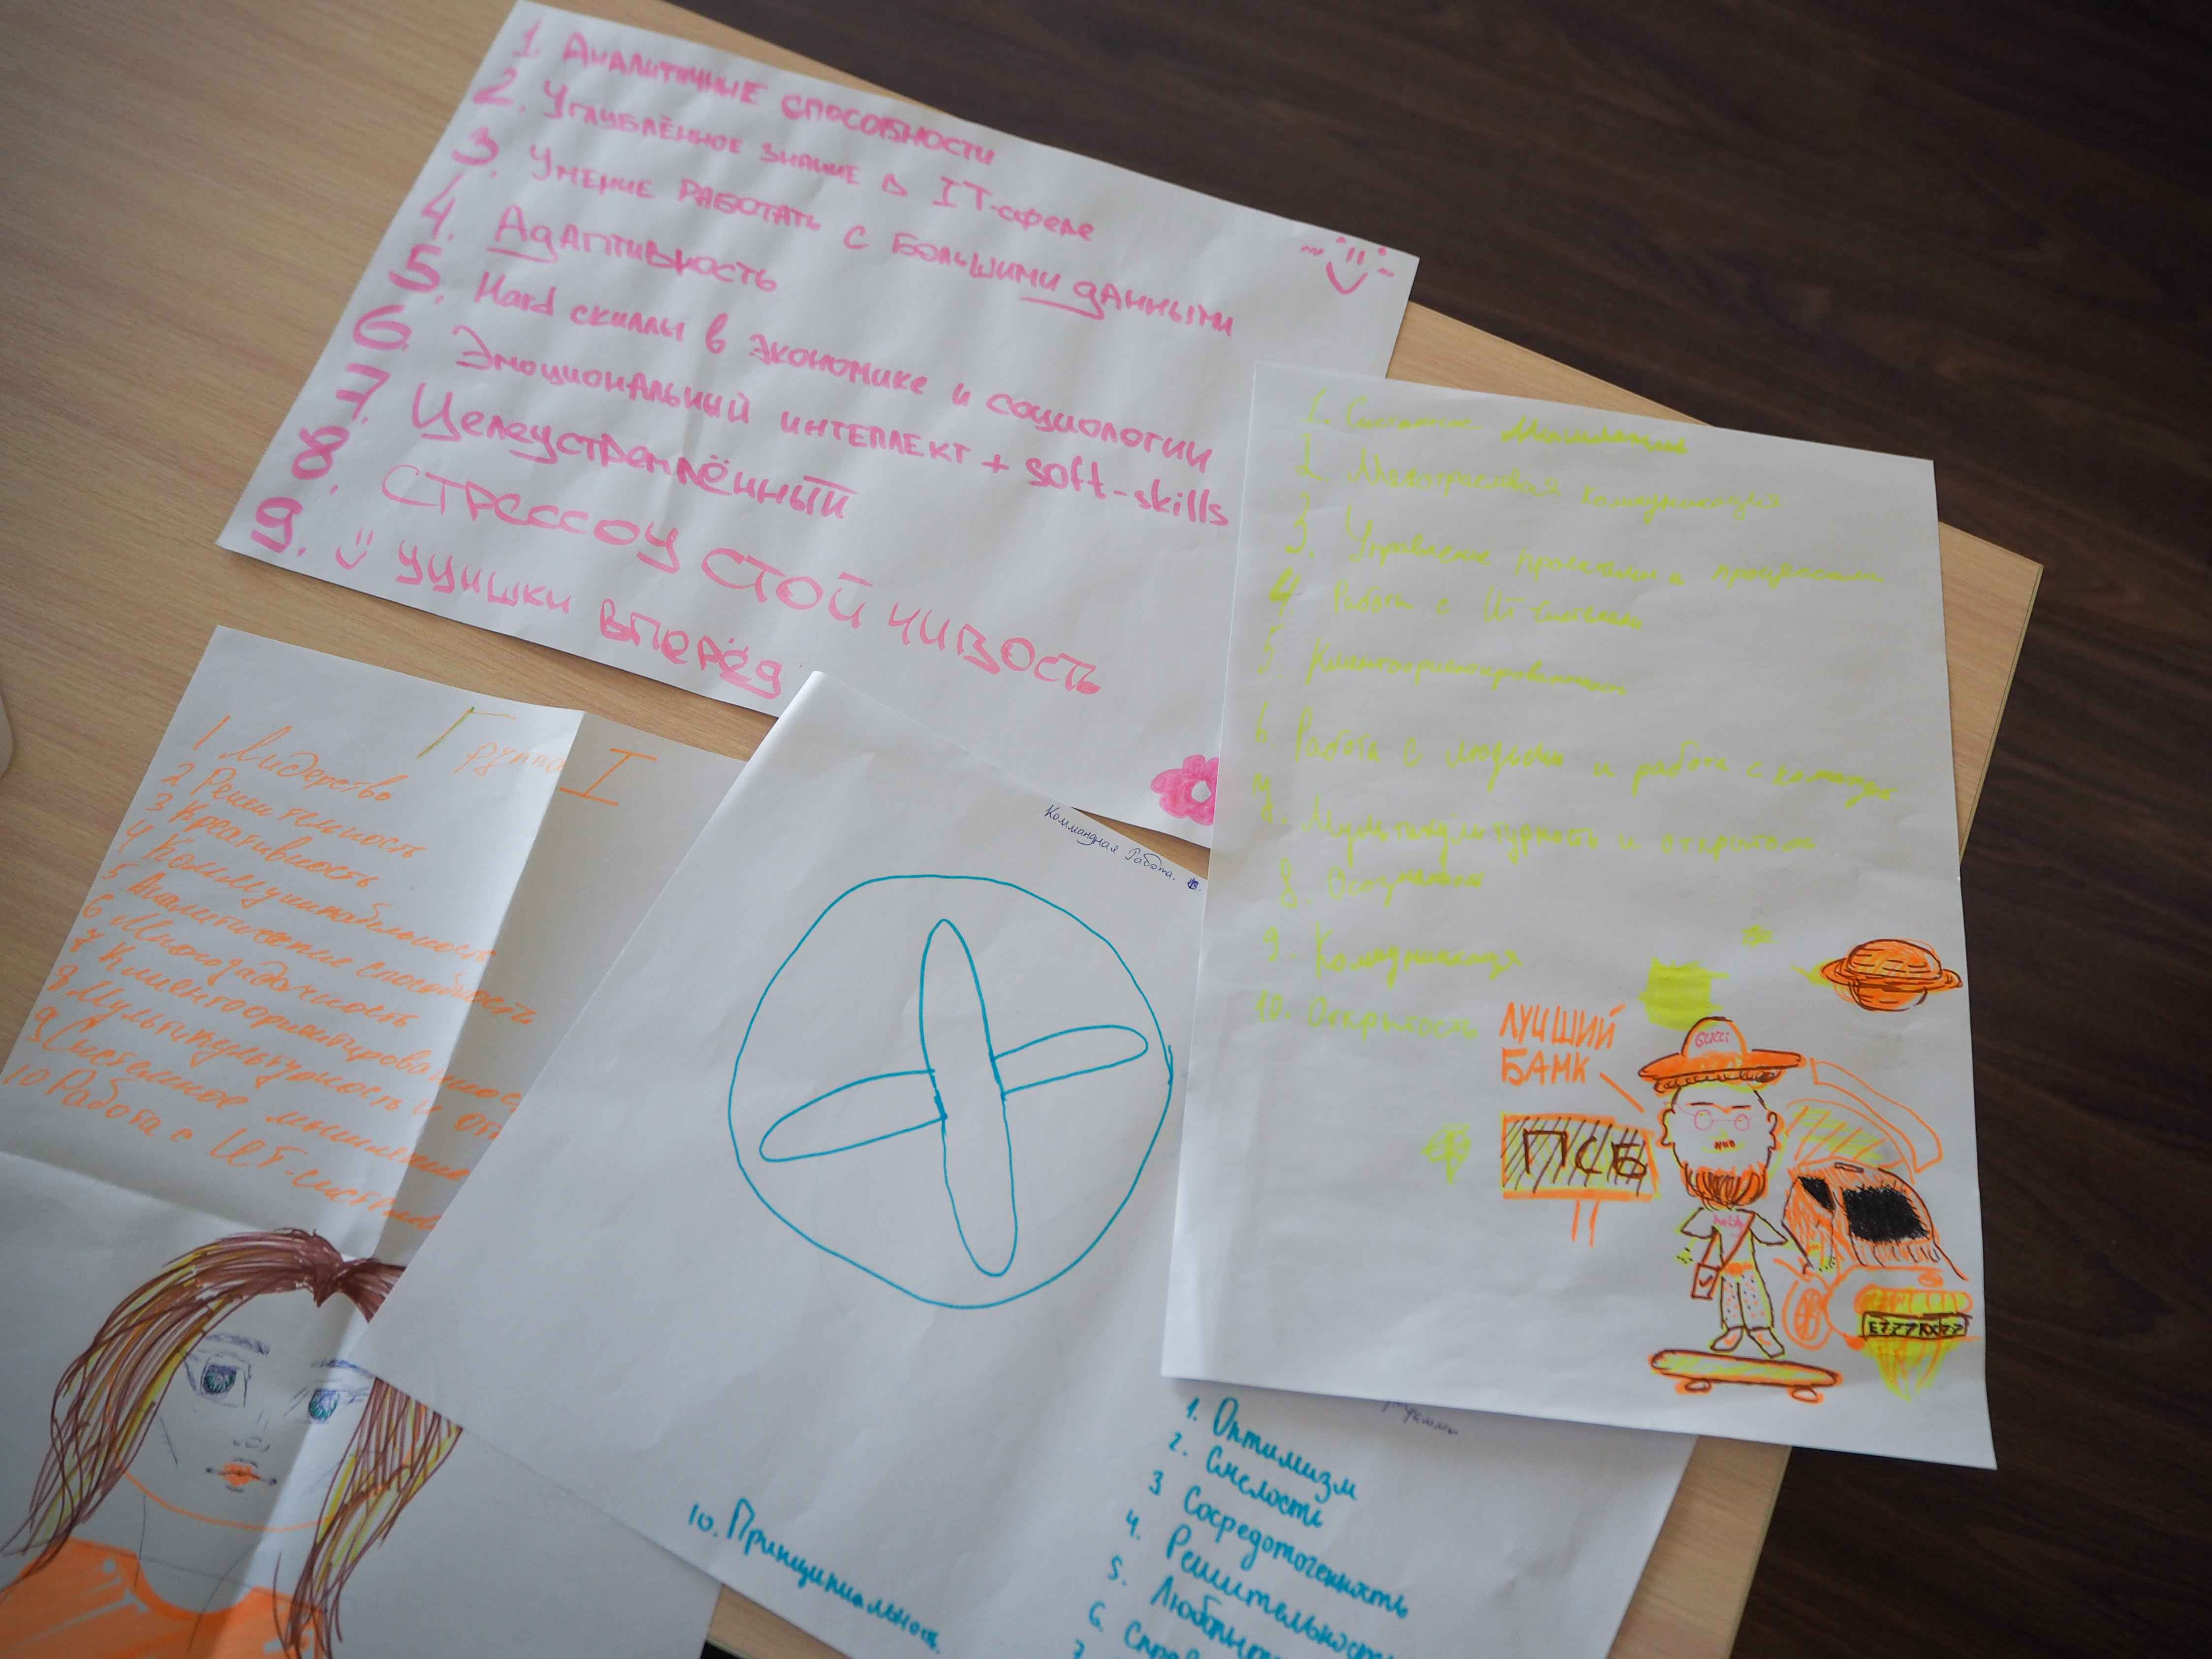 1. Аналитичные способности
2. Углублённое знание в IT-сфере
3. Умение работать с большими данными
4. Адаптивность
5. Hard скиллы в экономике и социологии
6. Эмоциональный интеллект + soft-skills
7. Целеустремлённый
8. Стрессоустойчивость
9. Ууишки вперёд
Группа I
1 Лидерство
2 Решительность
3 Креативность
4 Коммуникабельность
5 Аналитические способности
6 Многозадачность
7 Клиентоориентированность
8 Мультикультурность и от
9 Системное мышление
10 Работа с ИТ-системами
Коммандная Работа.
10. Принципиальность.
1. Оптимизм
2. Смелость
3 Сосредоточенность
4. Решительность
5. Любопыт
6. Спра
7
1. Системное мышление
2. Межотраслевая коммуникация
3. Управление проектами и процессами
4. Работа с IT системами
5 Клиентоориентированность
6. Работа с людьми и работа с командой
7. Мультикультурность и открытость
8. Осознанность
9. Коммуникация
10. Открытость
ЛУЧШИЙ
БАМК
GUCCI
ПСБ
E777KX77